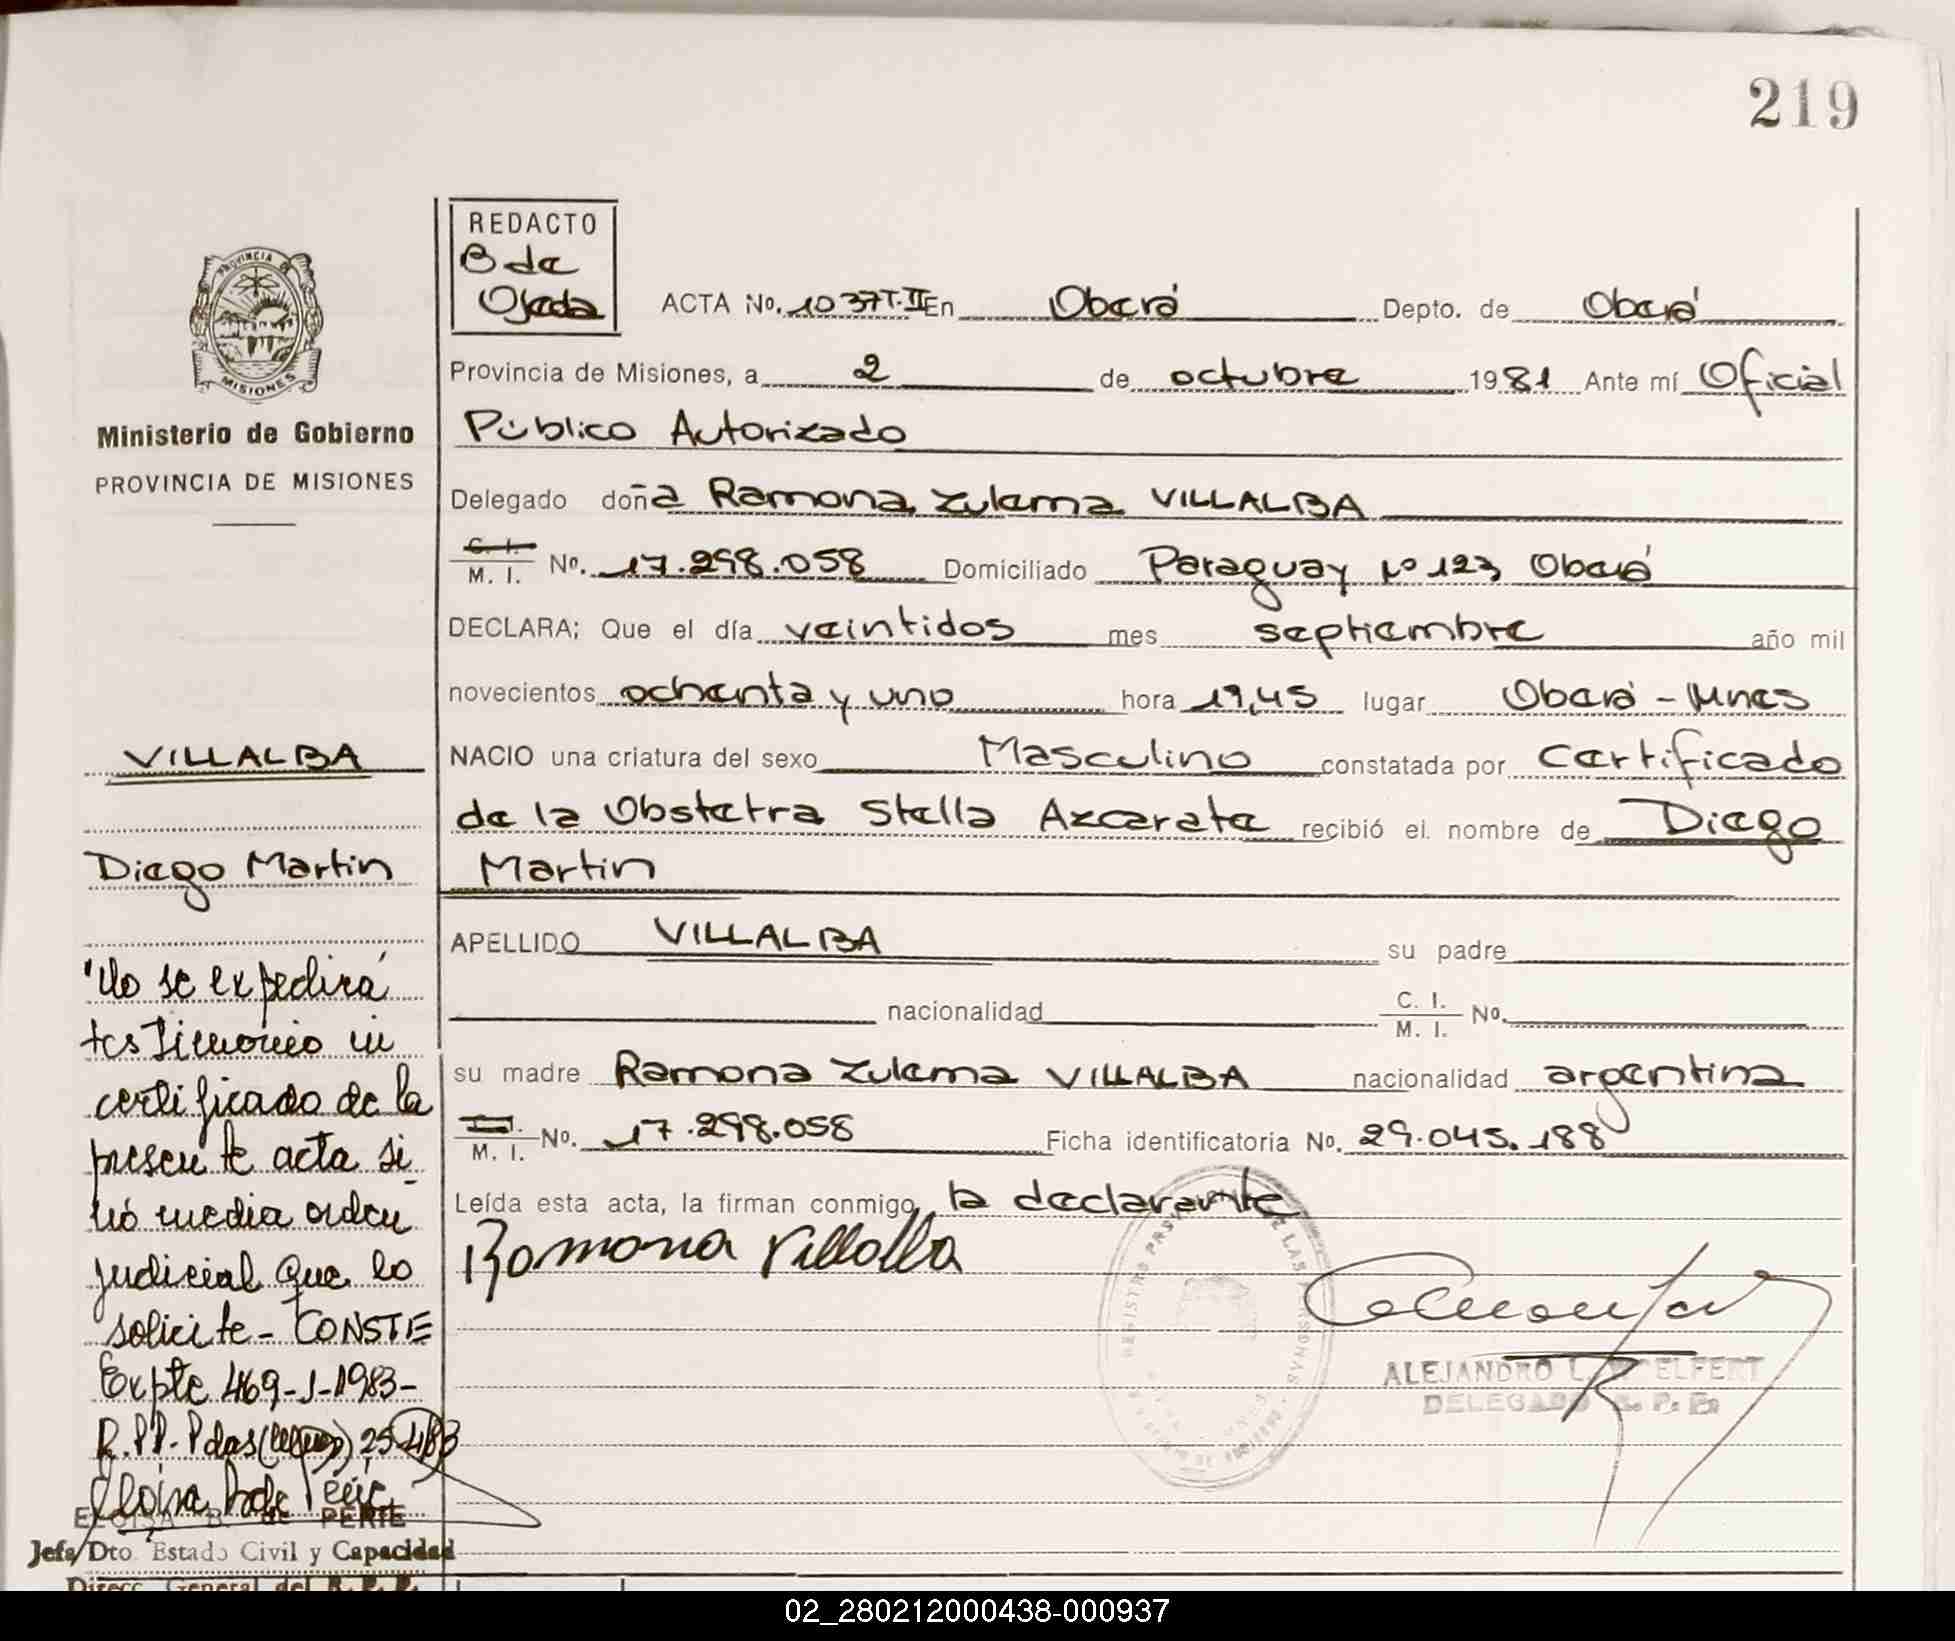 219
REDACTO
B de
Ojeda
PROVINCIA DE
MISIONES
Ministerio de Gobierno
PROVINCIA DE MISIONES
ACTA No. 1037 T.II En Oberá Depto. de Oberá
Provincia de Misiones, a 2 de octubre 1981 Ante mí Oficial
Público Autorizado
Delegado doña Ramona Zulema VILLALBA
C. I.
M. I. No. 17.298.058 Domiciliado Paraguay Nº 123, Oberá
DECLARA; Que el día veintidos mes septiembre año mil
novecientos ochenta y uno hora 19,45 lugar Oberá - Mnes
NACIO una criatura del sexo Masculino constatada por certificado
de la Obstetra Stella Azcarate recibió el nombre de Diego
Martin
APELLIDO VILLALBA su padre
nacionalidad C. I.
M. I. No.
su madre Ramona Zulema VILLALBA nacionalidad argentina
M. I. No. 17.298.058 Ficha identificatoria No. 29.045.188
Leída esta acta, la firman conmigo, la declarante
Ramona Villalba
ALEJANDRO L. ELFERT
DELEGADO R. P. P.
VILLALBA
Diego Martin
"No se expedirá
testimonio ni
certificado de la
presente acta si
nó media orden
judicial que lo
solicite - CONSTE
Expte 469-J-1983-
R.PP. Pdas 25-4-83
Eloisa B de Perié
ELOISA B. de PERIE
Jefa/Dto. Estado Civil y Capacidad
Direcc. General del R. P. P.
02_280212000438-000937